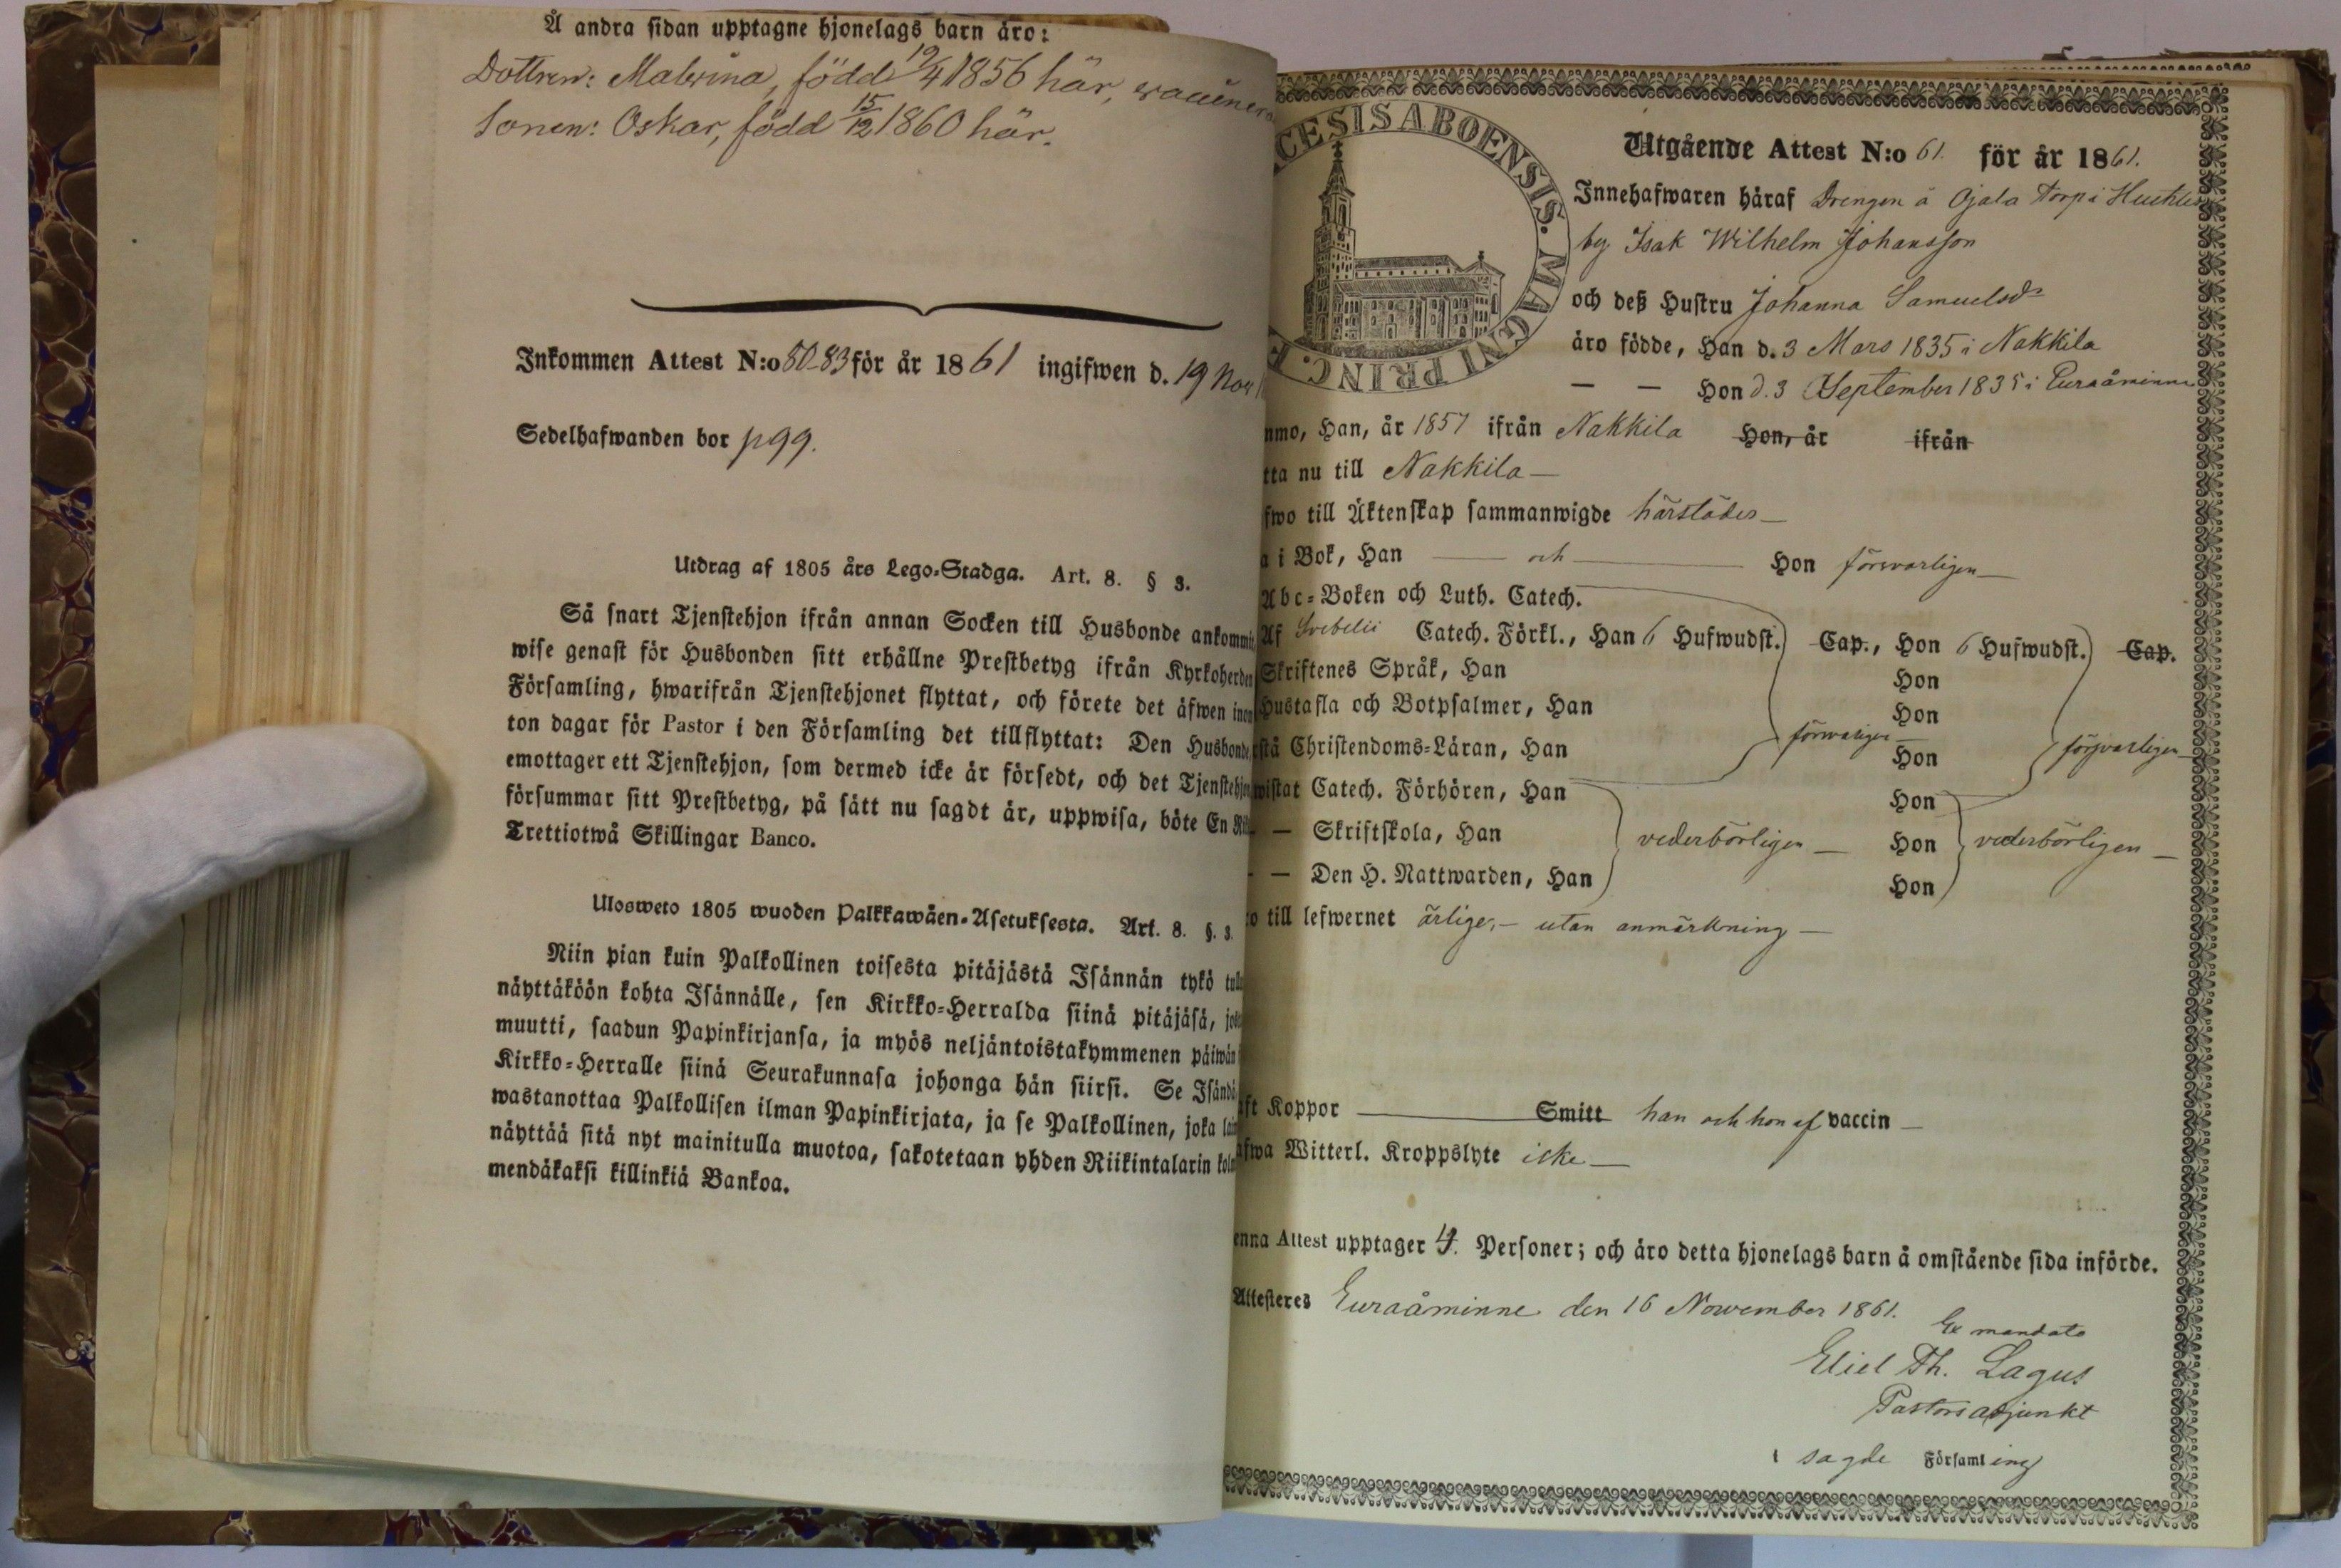 Å andra sidan upptagne hjonelags barn äro:
Dottren: Malvina, född 19/4 1856 här, vaccinera
Sonen: Oskar, född 15/12 1860 här.
Inkommen Attest N:o 80-83 för år 1861 ingifwen d. 19 Nov
Sedelhafwanden bor p 99.
Utdrag af 1805 års Lego-Stadga. Art. 8. § 3.
Så snart Tjenstehjon ifrån annan Socken till Husbonde ankommit
wise genast för Husbonden sitt erhållne Prestbetyg ifrån Kyrkoherden
Församling, hwarifrån Tjenstehjonet flyttat, och förete det äfwen inom
ton dagar för Pastor i den Församling det tillflyttat: Den Husbonde,
emottager ett Tjenstehjon, som dermed icke är försedt, och det Tjenstehjon
försummar sitt Prestbetyg, på sätt nu sagdt är, uppwisa, böte En
Trettiotwå Skillingar Banco.
Ulosweto 1805 wuoden Palkkawäen-Asetuksesta. Art. 8. §. 3.
Niin pian kuin Palkollinen toisesta pitäjästä Isännän tykö
näyttäköön kohta Isännälle, sen Kirkko-Herralda siinä pitäjäsä,
muutti, saadun Papinkirjansa, ja myös neljäntoistakymmenen päiwän
Kirkko-Herralle siinä Seurakunnasa johonga hän siirsi. Se Isändä
wastanottaa Palkollisen ilman Papinkirjata, ja se Palkollinen, joka
näyttää sitä nyt mainitulla muotoa, sakotetaan yhden Riikintalarin
mendäkaksi killinkiä Bankoa.
CESIS ABOENSIS. MAGNI PRINC. F
Utgående Attest N:o 61. för år 1861.
Innehafwaren häraf Drengen å Ojala torp i
by Isak Wilhelm Johansson
och deß Hustru Johanna Samuelsdr
äro födde, Han d. 3 Mars 1835 i Nakkila
— — Hon d. 3 September 1835 i Euraåminne
mo, Han, år 1857 ifrån Nakkila Hon, år ifrån
tta nu till Nakkila —
fwo till Äktenskap sammanwigde härstädes —
a i Bok, Han — och — Hon försvarligen —
Abc-Boken och Luth. Catech.
Af Svebelii Catech. Förkl., Han 6 Hufwudst. Cap., Hon 6 Hufwudst. Cap.
Skriftenes Språk, Han Hon
Hustafla och Botpsalmer, Han Hon
stå Christendoms-Läran, Han försvarligen — Hon försvarligen —
wistat Catech. Förhören, Han Hon
— Skriftskola, Han vederbörligen — Hon vederbörligen —
— — Den H. Nattwarden, Han Hon
o till lefwernet ärlige, — utan anmärkning —
ft Koppor — Smitt han och hon af vaccin —
fwa Witterl. Kroppslyte icke —
enna Attest upptager 4. Personer; och äro detta hjonelags barn å omstående sida införde.
Attesteres Euraåminne den 16 November 1861.
Ex mandato
Eliel Th. Lagus
Pastorsadjunkt
i sagde Församling